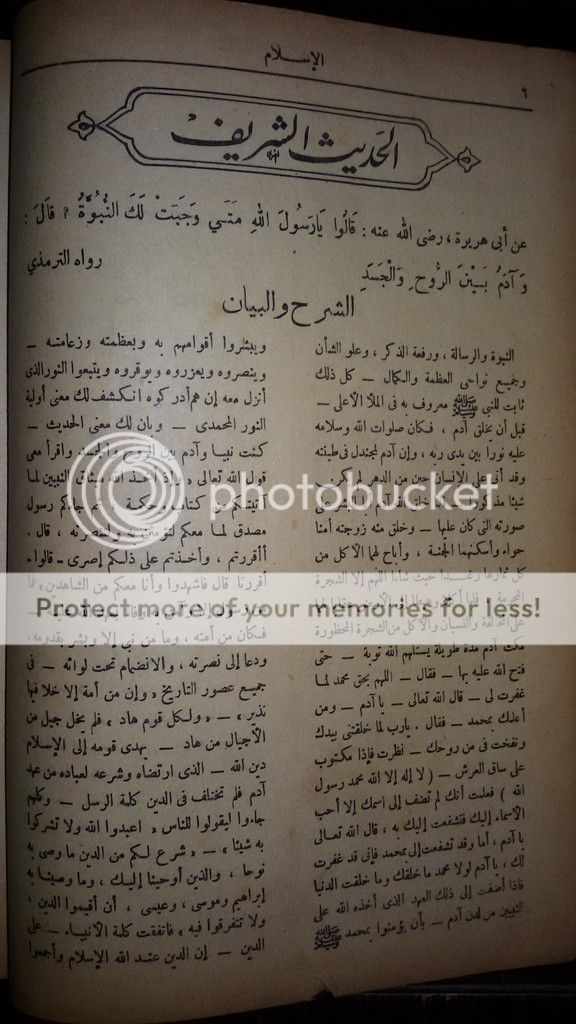 الإسلام
٩
الحديث الشريف
عن أبى هريرة ، رضى الله عنه : قَالُوا يَارَسُولَ اللهِ مَتَى وَجَبَتْ لَكَ النُّبُوَّةُ ؟ قَالَ :
وَآدَمُ بَيْنَ الرُّوحِ وَالْجَسَدِ رواه الترمذي
الشرح والبيان
النبوة والرسالة ، ورفعة الذكر ، وعلو الشأن
وجميع نواحى العظمة والكمال – كل ذلك
ثابت للنبى ﷺ معروف به فى الملأ الأعلى –
قبل أن يخلق آدم ، فكان صلوات الله وسلامه
عليه نورا بين يدى ربه ، وإن آدم لمجندل فى طينته
وقد أتى على الإنسان حين من الدهر لم يكن
شيئا
صورته التى كان عليها – وخلق منه زوجته أمنا
حواء وأسكنهما الجنة ، وأباح لهما الأكل من
كل ثمارها رغدا حيث شاءا اللهم إلا الشجرة
على المخالفة والنسيان والأكل من الشجرة المحظورة
مكث آدم مدة طويلة يستلهم الله توبة – حتى
فتح الله عليه بها – فقال – اللهم بحق محمد لما
غفرت لى – قال الله تعالى – يا آدم – ومن
أعلمك بمحمد – فقال . يارب لما خلقتنى بيدك
ونفخت فى من روحك – نظرت فإذا مكتوب
على ساق العرش – ( لا إله إلا الله محمد رسول
الله ) فعلمت أنك لم تضف إلى اسمك إلا أحب
الأسماء إليك فتشفعت إليك به ، قال الله تعالى
يا آدم ، أما وقد تشفعت إلى بمحمد فإنى قد غفرت
لك ، يا آدم لولا محمد ما خلقتك وما خلقت الدنيا
فإذا أضفت إلى ذلك العهد الذى أخذه الله على
النبيين من لدن آدم – بأن يؤمنوا بمحمد ﷺ
ويبشروا أقوامهم به وبعظمته وزعامته –
وينصروه ويعزروه ويوقروه ويتبعوا النور الذى
أنزل معه إن هم أدركوه انكشف لك معنى أولية
النور المحمدى – وبان لك معنى الحديث –
كنت نبيا وآدم بين الروح والجسد واقرأ معى
قول الله تعالى « وإذ أخذ الله ميثاق النبيين لما
آتيتكم من كتاب وحكمة ثم جاءكم رسول
مصدق لما معكم لتؤمنن به ولتنصرنه ، قال .
أأقررتم ، وأخذتم على ذلكم إصرى – قالوا –
أقررنا قال فاشهدوا وأنا معكم من الشاهدين ،
فكان من أمته ، وما من نبى إلا وبشر بقدومه ،
ودعا إلى نصرته ، والانضمام تحت لوائه – فى
جميع عصور التاريخ « وإن من أمة إلا خلا فيها
نذير » – « ولكل قوم هاد » فلم يخل جيل من
الأجيال من هاد – يهدى قومه إلى الإسلام
دين الله – الذى ارتضاه وشرعه لعباده من عهد
آدم فلم تختلف فى الدين كلمة الرسل – وكلهم
جاءوا ليقولوا للناس « اعبدوا الله ولا تشركوا
به شيئا » – « شرع لكم من الدين ما وصى به
نوحا ، والذين أوحينا إليك ، وما وصينا به
إبراهيم وموسى ، وعيسى ، أن أقيموا الدين ،
ولا تتفرقوا فيه » فاتفقت كلمة الأنبياء – على
الدين – إن الدين عند الله الإسلام وأجمعوا
photobucket
Protect more of your memories for less!